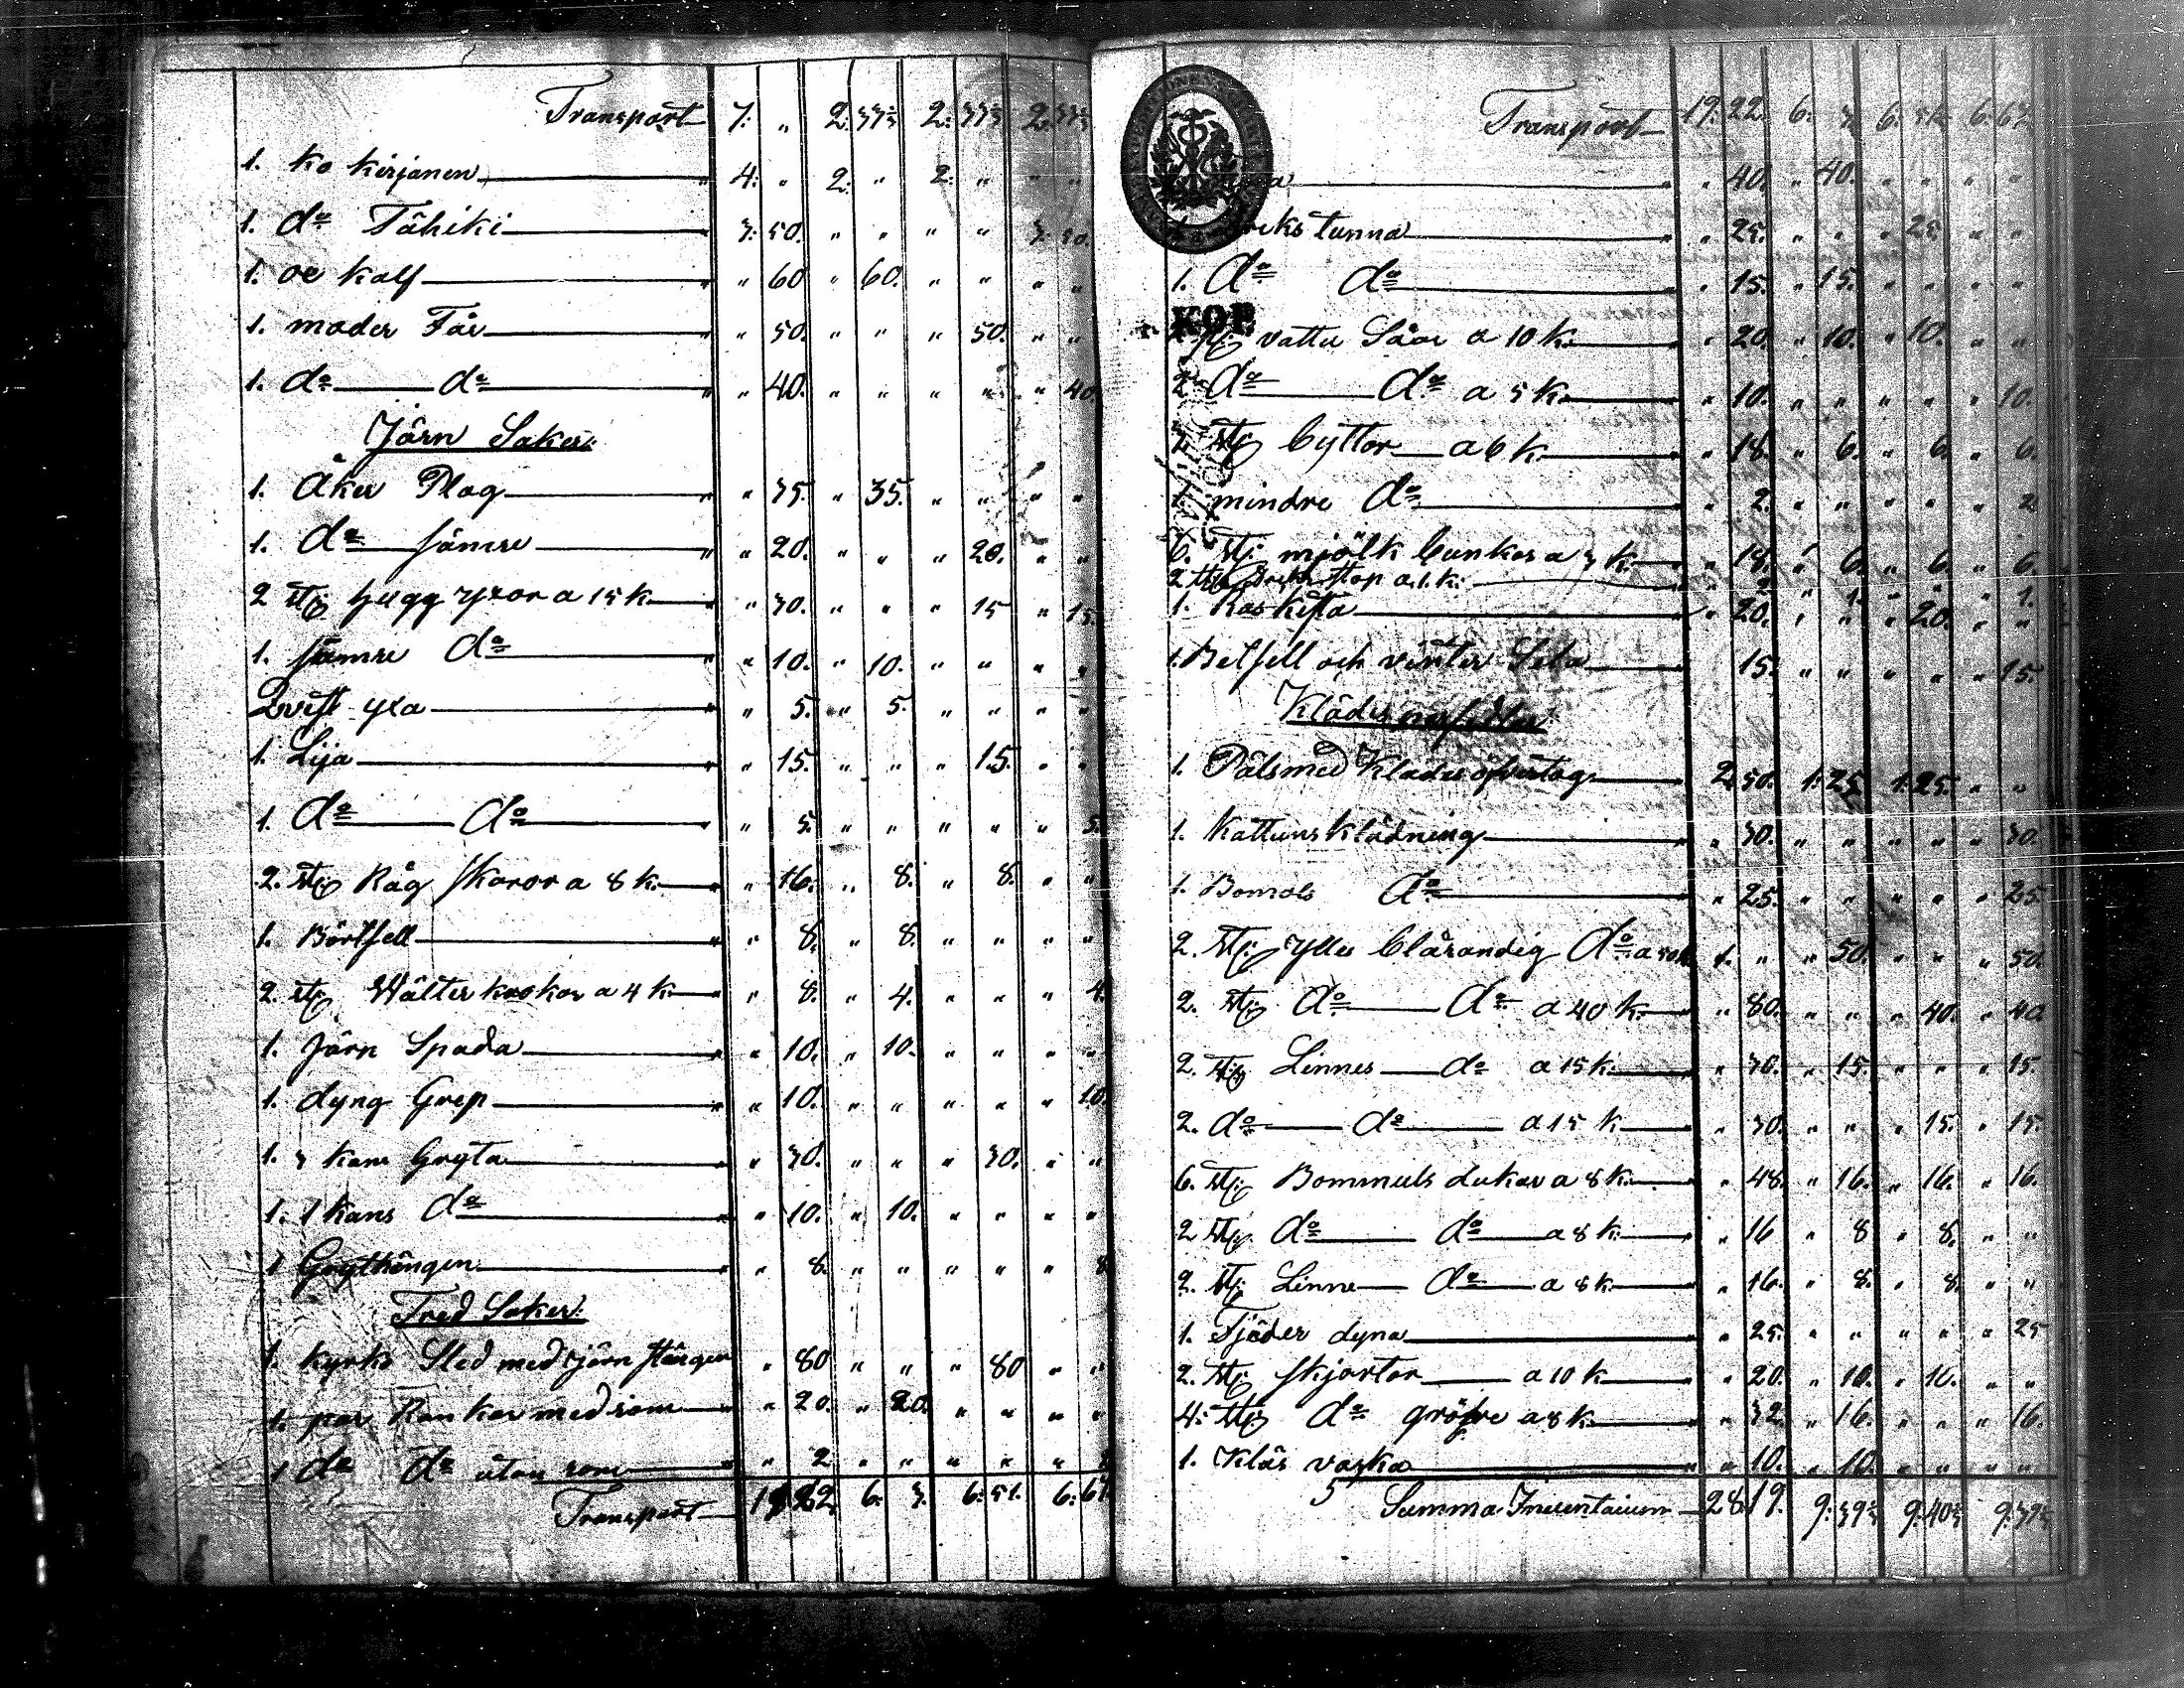 Transport 7: " 2: 33⅓ 2: 33⅓ 2: 33⅓
1. Ko Kirjanen " 4: " 2: " 2: " " "
1. do Tähiki 3: 50. " " " " 3: 50.
1. oe Kalf " " 60 " 60. " " " "
1. moder Får " " 50. " " " 50. " "
1. do do " " 40. " " " " " 40.
Järn Saker:
1. Åker Plog " " 35. " 35. " " " "
1. do sämre " " 20. " " " 20. " "
2 stj hugg yxor a 15 K. " 30. " " " 15 " 15.
1. sämre do " " 10. " 10. " " " "
Qvist yxa " " 5. " 5. " " " "
1. Lija " " 15. " " " 15. " "
1. do do " 5. " " " " " 5.
2. stj Råg skaror a 8 K. " 16. " 8. " 8. " "
1. Börtfell " " 8. " 8. " " " "
2. stj Wälter krokar a 4 K " 8. " 4. " " " 4.
1. Järn Spada " " 10. " 10. " " " "
1. dyng Grep " " 10. " " " " " 10.
1. 3 kans Gryta " 30. " " " 30. " "
1. 1 kans do " " 10. " 10. " " " "
1 Grythängen " " 8. " " " " " 8
Träd Saker:
1. Kyrko Sled med järn stänger " 80 " " " 80 " "
1. par Kankor med som " 20. " 20. " " " "
1 do do utan som " " 2 " " " " " 2
Transport 19 22. 6: 3. 6: 51. 6: 67.
Transport 19: 22. 6: 3. 6: 51. 6: 67.
" " 40. " 40. " " " "
tunna " " 25. " " " 25. " "
1. do do " " 15. " 15. " " " "
KOP
2 stj vattu Såar a 10 K. " 20. " 10. " 10. " "
2 do do a 5 K. " 10. " " " " " 10.
3 stj byttor a 6 K. " 18. " 6. " 6. " 6.
1 mindre do " 2. " " " " " 2
6. stj mjölk bunkar a 3 K. " 18. " 6. " 6. " 6.
2 stj stop a 1. K. " 2 " 1. " " " 1.
1. Kista " 20. " " " 20. " "
1. Betsell och vinter Sela 15. " " " " " 15.
Klädes persedlar
1. Päls med Klädes öfvertog 2. 50. 1: 25. 1: 25. " "
1. Kattuns Klädning " 30. " " " " " 30.
1. Bomols do " 25. " " " " " 25.
2. stj ylle blårandig do a 50 K 1. " " 50. " " " 50.
2. stj do do a 40 K. " 80. " " " 40. " 40
2. stj Linnes do a 15 K. " 30. " 15. " " " 15.
2. do do a 15 K. " 30. " " " 15. " 15.
6. stj Bommuls dukar a 8 K. " 48. " 16. " 16. " 16.
2 stj do do a 8 K. " 16 " 8 " 8. " "
2. stj Linne do a 8 K. " 16. " 8. " 8. " "
1. Fjäder dyna " 25. " " " " " 25
2. stj skjortor a 10 K " 20. " 10. " 10. " "
4. stj do gröfre a 8 K. " 32. " 16. " " " 16.
1. Kläs vaska " " 10. " 10. " " " "
5 Summa Inventarium 28 19. 9: 39⅔ 9: 40⅓ 9: 39